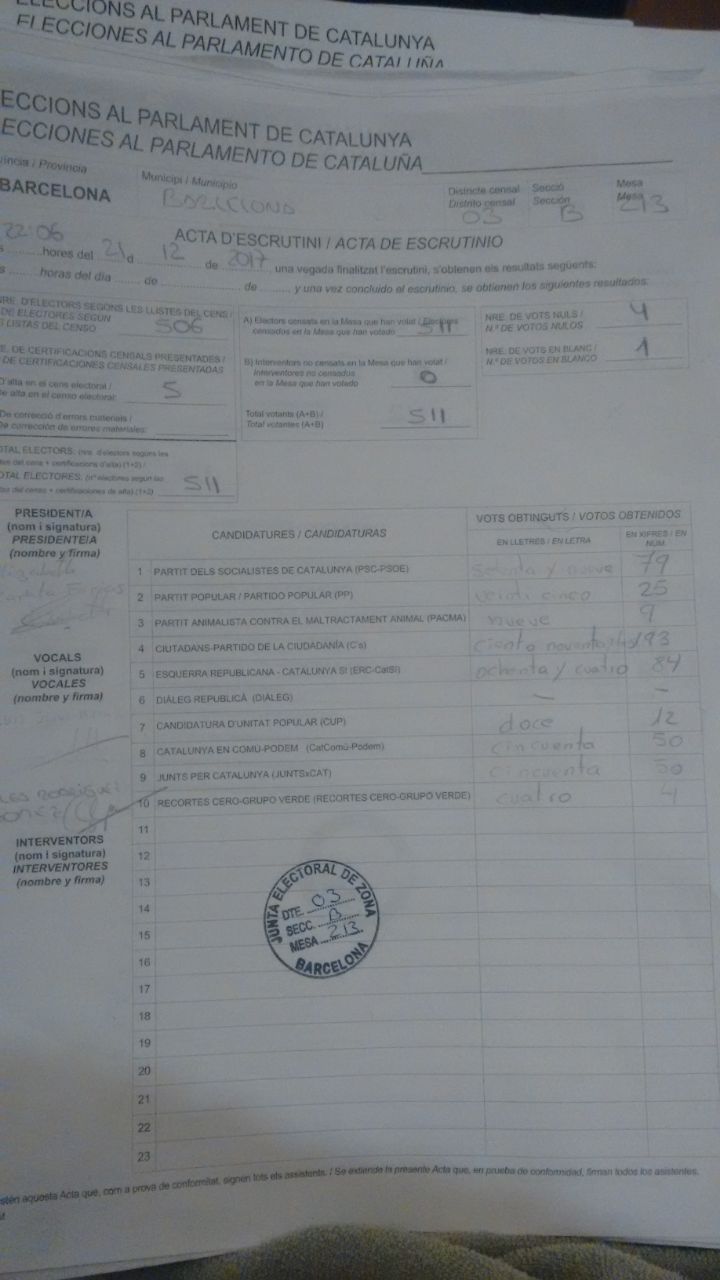 ELECCIONS AL PARLAMENT DE CATALUNYA
ELECCIONES AL PARLAMENTO DE CATALUÑA
ECCIONS AL PARLAMENT DE CATALUNYA
ECCIONES AL PARLAMENTO DE CATALUÑA
víncia / Provincia
Municipi / Municipio
Districte censal
Secció
Mesa
BARCELONA
BARCELONA
Distrito censal
Sección
Mesa
03
B
213
ACTA D'ESCRUTINI / ACTA DE ESCRUTINIO
22:06 hores del 21 d 12 de 2017 una vegada finalitzat l'escrutini, s'obtenen els resultats següents:
s ........ horas del día ........ de ........ de ........ y una vez concluido el escrutinio, se obtienen los siguientes resultados:
NRE. D'ELECTORS SEGONS LES LLISTES DEL CENS /
DE ELECTORES SEGÚN
S LISTAS DEL CENSO
506
E. DE CERTIFICACIONS CENSALS PRESENTADES /
DE CERTIFICACIONES CENSALES PRESENTADAS
D'alta en el cens electoral /
de alta en el censo electoral:
5
De correcció d'errors materials /
De corrección de errores materiales:
OTAL ELECTORS: (nre. d'electors segons les
tes del cens + certificacions d'alta) (1+2) /
OTAL ELECTORES: (nº electores según las
tas del censo + certificaciones de alta) (1+2)
511
A) Electors censats en la Mesa que han votat / Electores
censados en la Mesa que han votado
511
B) Interventors no censats en la Mesa que han votat /
Interventores no censados
en la Mesa que han votado
0
Total votants (A+B) /
Total votantes (A+B)
511
NRE. DE VOTS NULS /
N.º DE VOTOS NULOS
4
NRE. DE VOTS EN BLANC /
N.º DE VOTOS EN BLANCO
1
PRESIDENT/A
(nom i signatura)
PRESIDENTE/A
(nombre y firma)
VOCALS
(nom i signatura)
VOCALES
(nombre y firma)
RODRIGUEZ
INTERVENTORS
(nom i signatura)
INTERVENTORES
(nombre y firma)
CANDIDATURES / CANDIDATURAS
VOTS OBTINGUTS / VOTOS OBTENIDOS
EN LLETRES / EN LETRA
EN XIFRES / EN
NÚM.
1 PARTIT DELS SOCIALISTES DE CATALUNYA (PSC-PSOE) setenta y nueve 79
2 PARTIT POPULAR / PARTIDO POPULAR (PP) veinti cinco 25
3 PARTIT ANIMALISTA CONTRA EL MALTRACTAMENT ANIMAL (PACMA) nueve 9
4 CIUTADANS-PARTIDO DE LA CIUDADANÍA (C's) ciento noventa 193
5 ESQUERRA REPUBLICANA - CATALUNYA SÍ (ERC-CatSí) ochenta y cuatro 84
6 DIÀLEG REPUBLICÀ (DIÀLEG) — –
7 CANDIDATURA D'UNITAT POPULAR (CUP) doce 12
8 CATALUNYA EN COMÚ-PODEM (CatComú-Podem) cincuenta 50
9 JUNTS PER CATALUNYA (JUNTSxCAT) cincuenta 50
10 RECORTES CERO-GRUPO VERDE (RECORTES CERO-GRUPO VERDE) cuatro 4
11
12
13
14
15
16
17
18
19
20
21
22
23
JUNTA ELECTORAL DE ZONA
DTE. 03
SECC. B
MESA 213
BARCELONA
stén aquesta Acta que, com a prova de conformitat, signen tots els assistents. / Se extiende la presente Acta que, en prueba de conformidad, firman todos los asistentes.